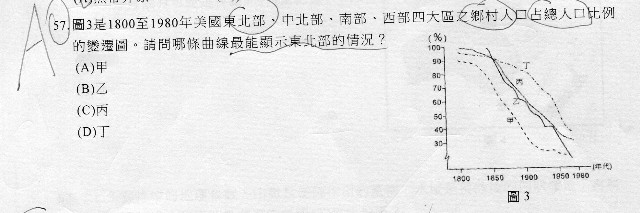 A
57.圖3是1800至1980年美國東北部、中北部、南部、西部四大區之鄉村人口占總人口比例
的變遷圖。請問哪條曲線最能顯示東北部的情況？
(A)甲
(B)乙
(C)丙
(D)丁
(%)
100
90
80
70
60
50
40
30
丁
丙
乙
甲
1800 1850 1900 1950 1980 (年代)
圖3